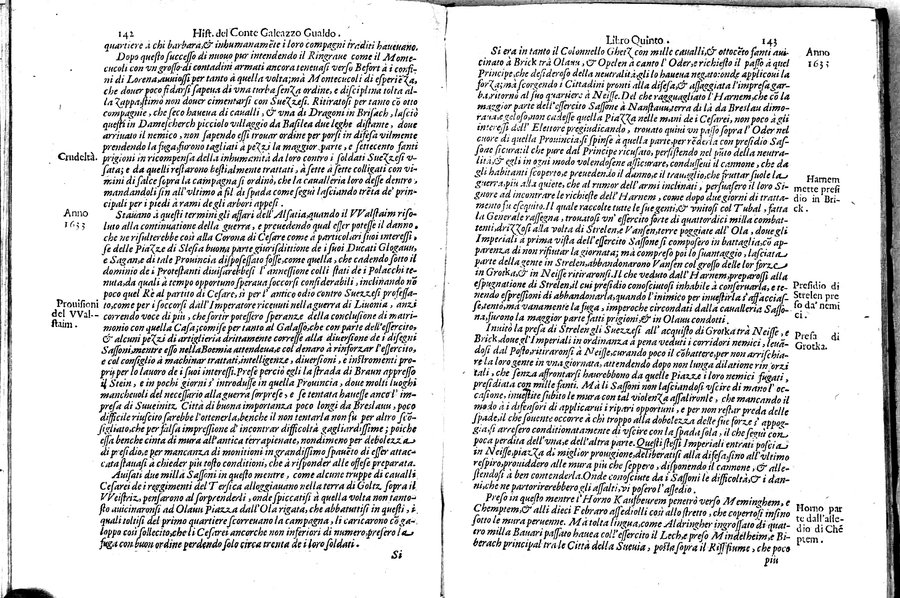 142 Hist. del Conte Galeazzo Gualdo.
quartiere à chi barbara, & inhumanamẽte i loro compagni traditi haueuano.
Dopo questo successo di nuouo pur intendendo il Ringraue come il Monte-
cucoli con vn grosso di contadini armati ancora teneuasi verso Befort à i confi-
ni di Lorena, auuiossi per tanto à quella volta; mà Montecucoli di esperiẽza,
che douer poco fidarsi sapeua di vna turba senza ordine, e disciplina tolta al-
la zappa stimò non douer cimentarsi con Suezzesi. Ritiratosi per tanto cõ otto
compagnie, che seco haueua di caualli, & vna di Dragoni in Brisach, lasciò
questi in Damescherch picciolo villaggio da Basilea due leghe distante, doue
arriuato il nemico, non sapendo essi trouar ordine per porsi in difesa vilmente
prendendo la fuga, furono tagliati à pezzi la maggior parte, e settecento fanti
Crudeltà.
prigioni in ricompensa della inhumanità da loro contro i soldati Suezzesi v-
sata; e da quelli restarono bestialmente trattati, à sette à sette colligati con vi-
mini di salce sopra la campagna si ordinò, che la caualleria loro desse dentro,
mandandoli sin all'vltimo à fil di spada come seguì lasciando trenta de' prin-
cipali per i piedi à rami de gli arbori appesi.
Anno
1633
Stauano à questi termini gli affari dell'Alsatia, quando il VValstaim riso-
luto alla continuatione della guerra, e preuedendo qual esser potesse il danno,
che ne risulterebbe così alla Corona di Cesare come à particolari suoi interessi,
se delle Piazze di Slesia buona parte giurisdittione de i suoi Ducati Glogaun,
e Sagan, e di tale Prouincia dispossessato fosse, come quella, che cadendo sotto il
dominio de i Protestanti diuisarebbesi l'annessione colli stati de i Polacchi te-
nuta, da quali à tempo opportuno speraua soccorsi considerabili, inclinando nõ
poco quel Rè al partito di Cesare, sì per l'antico odio contro Suezzesi professa-
Prouisioni
del VVal-
staim.
to, come per i soccorsi dall'Imperatore riceuuti nella guerra di Liuonia, anzi
correndo voce di più, che fortir potessero speranze della conclusione di matri-
monio con quella Casa; comise per tanto al Galasso, che con parte dell'esercito,
& alcuni pezzi di artiglieria drittamente corresse alla diuersione de i disegni
Sassoni, mentre esso nella Boemia attendeua, e col denaro à rinforzar l'esercito,
e col consiglio à machinar trattati, intelligenze, diuersioni, e instromenti pro-
prij per lo lauoro de i suoi interessi. Prese perciò egli la strada di Braun appresso
il Stein, e in pochi giorni s'introdusse in quella Prouincia, doue molti luoghi
mancheuoli del necessario alla guerra sorprese, e se tentata hauesse anco l'im-
presa di Suueinitz Città di buona importanza poco longi da Breslauu, poco
difficile riuscito sarebbe l'ottenerla, benche non tentarla non fù per altro scõ-
sigliato, che per falsa impressione d'incontrar difficoltà gagliardissime; poiche
essa benche cinta di mura all'antica terrapienate, nondimeno per debolezza
di presidio, e per mancanza di monitioni in grandissimo spauẽto di esser attac-
cata stauasi à chieder più tosto conditioni, che à risponder alle offese preparata.
Auisati due milla Sassoni in questo mentre, come alcune truppe di caualli
Cesarei de i regimenti del Tersica alloggiauano nella terra di Goltz sopra il
VVeistriz, pensarono al sorprenderli, onde spiccatisi à quella volta non tanto-
sto auicinaronsi ad Olauu Piazza dall'Ola rigata, che abbattutisi in questi, i
quali toltisi del primo quartiere scorreuano la campagna, li caricarono cõ ga-
loppo così sollecito, che li Cesarei ancorche non inferiori di numero, presero la
fuga con buon ordine perdendo solo circa trenta de i loro soldati.
Si
Libro Quinto. 143
Anno
1633
Si era in tanto il Colonnello Ghetz con mille caualli, & ottocẽto fanti aui-
cinato à Brick trà Olauu, & Opelen à canto l'Oder, e richiesto il passo à quel
Principe, che desideroso della neutralità egli lo haueua negato: onde applicoui la
forza; mà scorgendo i Cittadini pronti alla difesa, & assaggiata l'impresa gar-
ba, ritornò al suo quartiere à Neisse. Del che ragguagliato l'Harnem, che cõ la
maggior parte dell'esercito Sassone à Nanstauu, terra di là da Breslau dimo-
raua, e geloso, non cadesse quella Piazza nelle mani de i Cesarei, non poco à gli
interessi dell'Elettore pregiudicando, trouato quini vn passo sopra l'Oder nel
cuore di quella Prouincia si spinse à quella parte, per rẽderla con presidio Sas-
sone sicura: il che pure dal Principe ricusato, persistendo nel pũto della neutra-
lità, & egli in ogni modo volendosene assicurare, condusseui il cannone, che da
gli habitanti scoperto, e preuedendo il danno, e il trauaglio, che fruttar suole la
Harnem
mette presi
dio in Bri-
ck.
guerra, più alla quiete, che al rumor dell'armi inclinati, persuasero il loro Si-
gnore ad incontrare le richieste dell'Harnem, come dopo due giorni di tratta-
mento fù esequito. Il quale raccolte tutte le sue genti, & vnitosi col Tubal, fatta
la Generale rassegna, trouatosi vn' esercito forte di quattordici milla combat-
tenti, drizzossi alla volta di Strelen, e Vansen, terre poggiate all'Ola, doue gli
Imperiali à prima vista dell'esercito Sassone si composero in battaglia, cõ appa-
renza di non rifiutar la giornata; mà compreso poi lo suantaggio, lasciata
parte della gente in Strelen, abbandonarono Vansen col grosso delle lor forze
in Grotka, & in Neisse ritiraronsi. Il che veduto dall'Harnem, preparossi alla
Presidio di
Strelen pre
so da' nemi
ci.
espugnatione di Strelen, il cui presidio conosciutosi inhabile à conseruarla, e te-
nendo espressioni di abbandonarla, quando l'inimico per inuestirla s'affaccias-
se, tentò, mà vanamente la fuga, imperoche circondati dalla caualleria Sasso-
na, furono la maggior parte fatti prigioni, & in Olauu condotti.
Presa di
Grotka.
Inuitò la presa di Strelen gli Suezzesi all'acquisto di Grotka trà Neisse, e
Brick, doue gl'Imperiali in ordinanza à pena veduti i corridori nemici, leuã-
dosi dal Posto, ritiraronsi à Neisse, curando poco il cõbattere, per non arrischia-
re la loro gente in vna giornata, attendendo dopo non lunga dilatione rinforzi
tali, che senza affrontarsi haurebbono da quelle Piazze i loro nemici fugati,
presidiata con mille fanti. Mà li Sassoni non lasciandosi vscire di mano l'oc-
casione, inuestite subito le mura con tal violenza assalironle, che mancando il
modo à i difensori di applicarui i ripari opportuni, e per non restar preda delle
Spade, il che souente occorre à chi troppo alla debolezza delle sue forze s'appog-
gia, arresersi conditionatamente di vscire con la spada sola, il che seguì con
poca perdita dell'vna, e dell'altra parte. Questi stessi Imperiali entrati poscia
in Neisse, piazza di miglior prouigione, deliberatisi alla difesa sino all'vltimo
respiro, prouiddero alle mura più che seppero, disponendo il cannone, & alle-
stendosi à ben contenderla. Onde conosciute da i Sassoni le difficoltà, & i dan-
ni, che ne partorirebbero gli assalti, vi posero l'assedio.
Homo par
te dall'asse
dio di Chẽ
ptem.
Preso in questo mentre l'Horno Kausbeurem penetrò verso Meminghem, e
Chemptem, & alli dieci Febraro assediolli così allo stretto, che copertosi insino
sotto le mura peruenne. Mà tolta lingua, come Aldringher ingrossato di quat-
tro milla Bauari passato haueua coll'esercito il Lech, e preso Mindelheim, e Bi-
berach principal trà le Città della Sueuia, posta sopra il Rissfiume, che poco
più